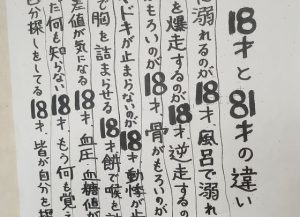 18才と81才の違い
に溺れるのが18才 風呂で溺れ
を爆走するのが18才 逆走するの
もろいのが18才 骨がもろいのが
ドキが止まらないのが18才 動悸が止
で胸を詰まらせる18才 餅で喉を詰
差値が気になる18才 血圧血糖値が
だ何も知らない18才、もう何も覚え
自分探しをしてる18才、皆が自分を探